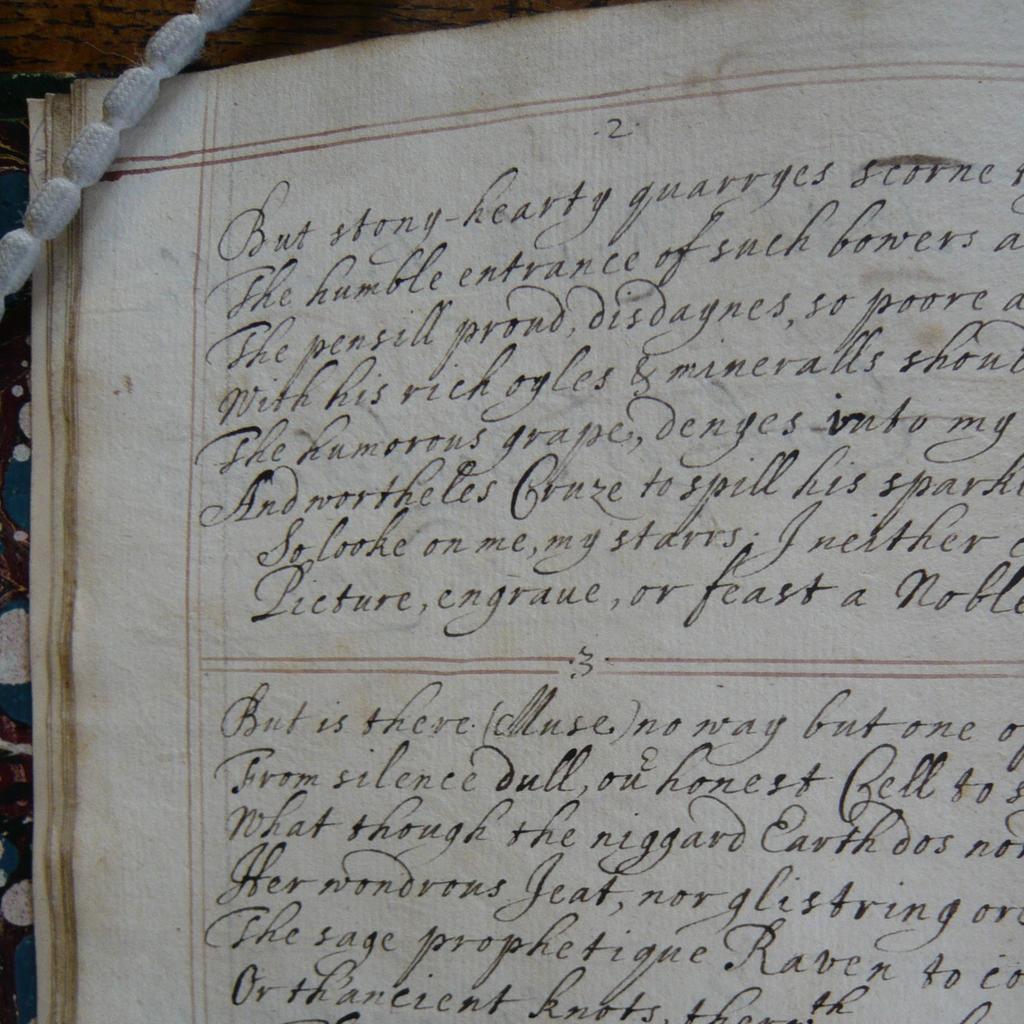 .2.
But stony-hearty quarryes scorne
The humble entrance of such bowers a
The pensill proud, disdaynes, so poore a
With his rich oyles & mineralls shou
The humorous grape, denyes vnto my
And wortheles Cruze to spill his spark
So looke on me, my starrs: I neither
Picture, engraue, or feast a Noble
.3.
But is there (Muse) no way but one o
From silence dull, our honest Cell to s
What though the niggard Earth dos no
Her wondrous Jeat, nor glistring or
The sage prophetique Raven to co
Or th'ancient knots,